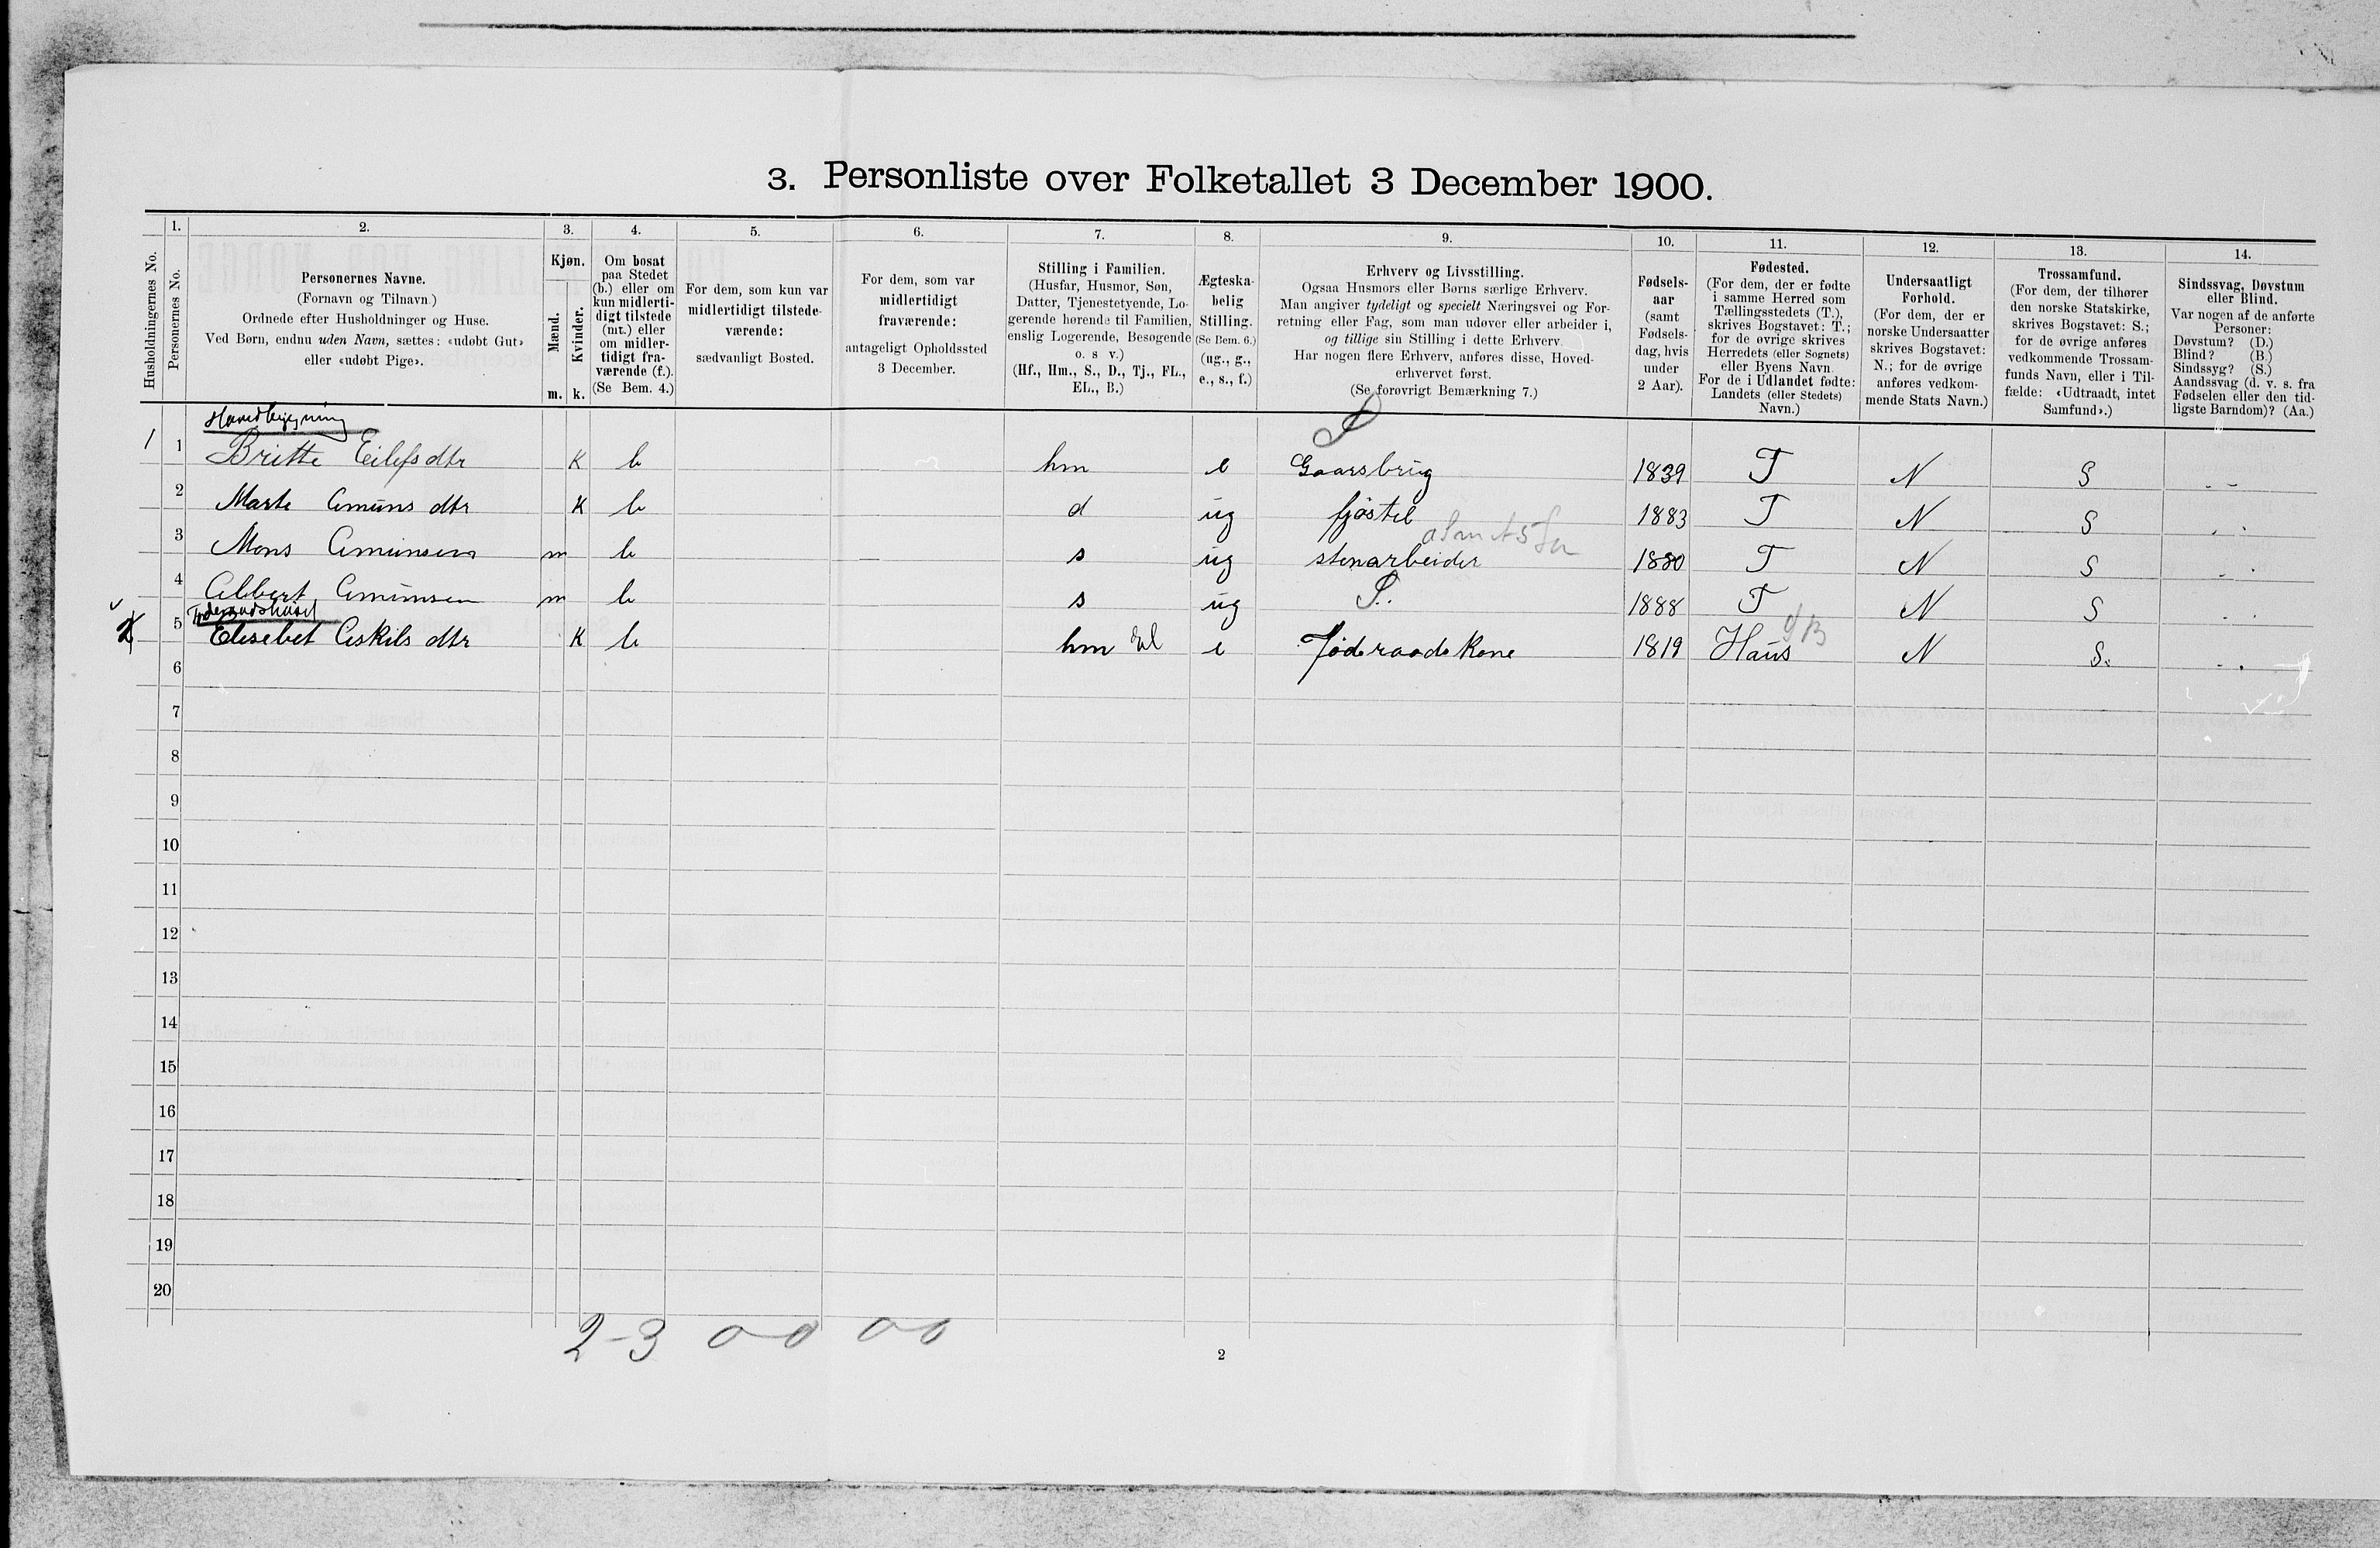 3. Personliste over Folketallet 3 December 1900.
1. 2. 3. 4. 5. 6. 7. 8. 9. 10. 11. 12. 13. 14.
Husholdningernes No.
Personernes No.
Personernes Navne.
(Fornavn og Tilnavn.)
Ordnede efter Husholdninger og Huse.
Ved Børn, endnu uden Navn, sættes: «udøbt Gut»
eller «udøbt Pige».
Kjøn.
Mænd.
Kvinder.
m. k.
Om bosat
paa Stedet
(b.) eller om
kun midlerti-
digt tilstede
(mt.) eller
om midler-
tidigt fra-
værende (f.).
(Se Bem. 4.)
For dem, som kun var
midlertidigt tilstede-
værende:
sædvanligt Bosted.
For dem, som var
midlertidigt
fraværende:
antageligt Opholdssted
3 December.
Stilling i Familien.
(Husfar, Husmor, Søn,
Datter, Tjenestetyende, Lo-
gerende hørende til Familien,
enslig Logerende, Besøgende
o. s v.)
(Hf., Hm., S., D., Tj., FL.,
EL., B.)
Ægteska-
belig
Stilling.
(Se Bem. 6.)
(ug., g.,
e., s., f.)
Erhverv og Livsstilling.
Ogsaa Husmors eller Børns særlige Erhverv.
Man angiver tydeligt og specielt Næringsvei og For-
retning eller Fag, som man udøver eller arbeider i,
og tillige sin Stilling i dette Erhverv.
Har nogen flere Erhverv, anføres disse, Hoved-
erhvervet først.
(Se forøvrigt Bemærkning 7.)
Fødsels-
aar
(samt
Fødsels-
dag, hvis
under
2 Aar).
Fødested.
(For dem, der er fødte
i samme Herred som
Tællingsstedets (T.),
skrives Bogstavet: T.;
for de øvrige skrives
Herredets (eller Sognets)
eller Byens Navn.
For de i Udlandet fødte:
Landets (eller Stedets)
Navn.)
Undersaatligt
Forhold.
(For dem, der er
norske Undersaatter
skrives Bogstavet:
N.; for de øvrige
anføres vedkom-
mende Stats Navn.)
Trossamfund.
(For dem, der tilhører
den norske Statskirke,
skrives Bogstavet: S.;
for de øvrige anføres
vedkommende Trossam-
funds Navn, eller i Til-
fælde: «Udtraadt, intet
Samfund».)
Sindssvag, Døvstum
eller Blind.
Var nogen af de anførte
Personer:
Døvstum? (D.)
Blind? (B.)
Sindssyg? (S.)
Aandssvag (d. v. s. fra
Fødselen eller den tid-
ligste Barndom)? (Aa.)
Hovedbygning
1 1 Britte Eilefs dtr K b hm e Gaarsbrug 1839 T N S
2 Marte Amuns dtr K b d ug fjøstel 1883 T N S
3 Mons Amunsen m b s ug stenarbeider 1880 T N S
4 Albert Amunsen m b s ug S. 1888 T N S
2 5 Elisebet Askils dtr K b hm el e Føderaads Kone 1819 Haus N S.
6
7
8
9
10
11
12
13
14
15
16
17
18
19
20
2-3 0-0 0-0
2